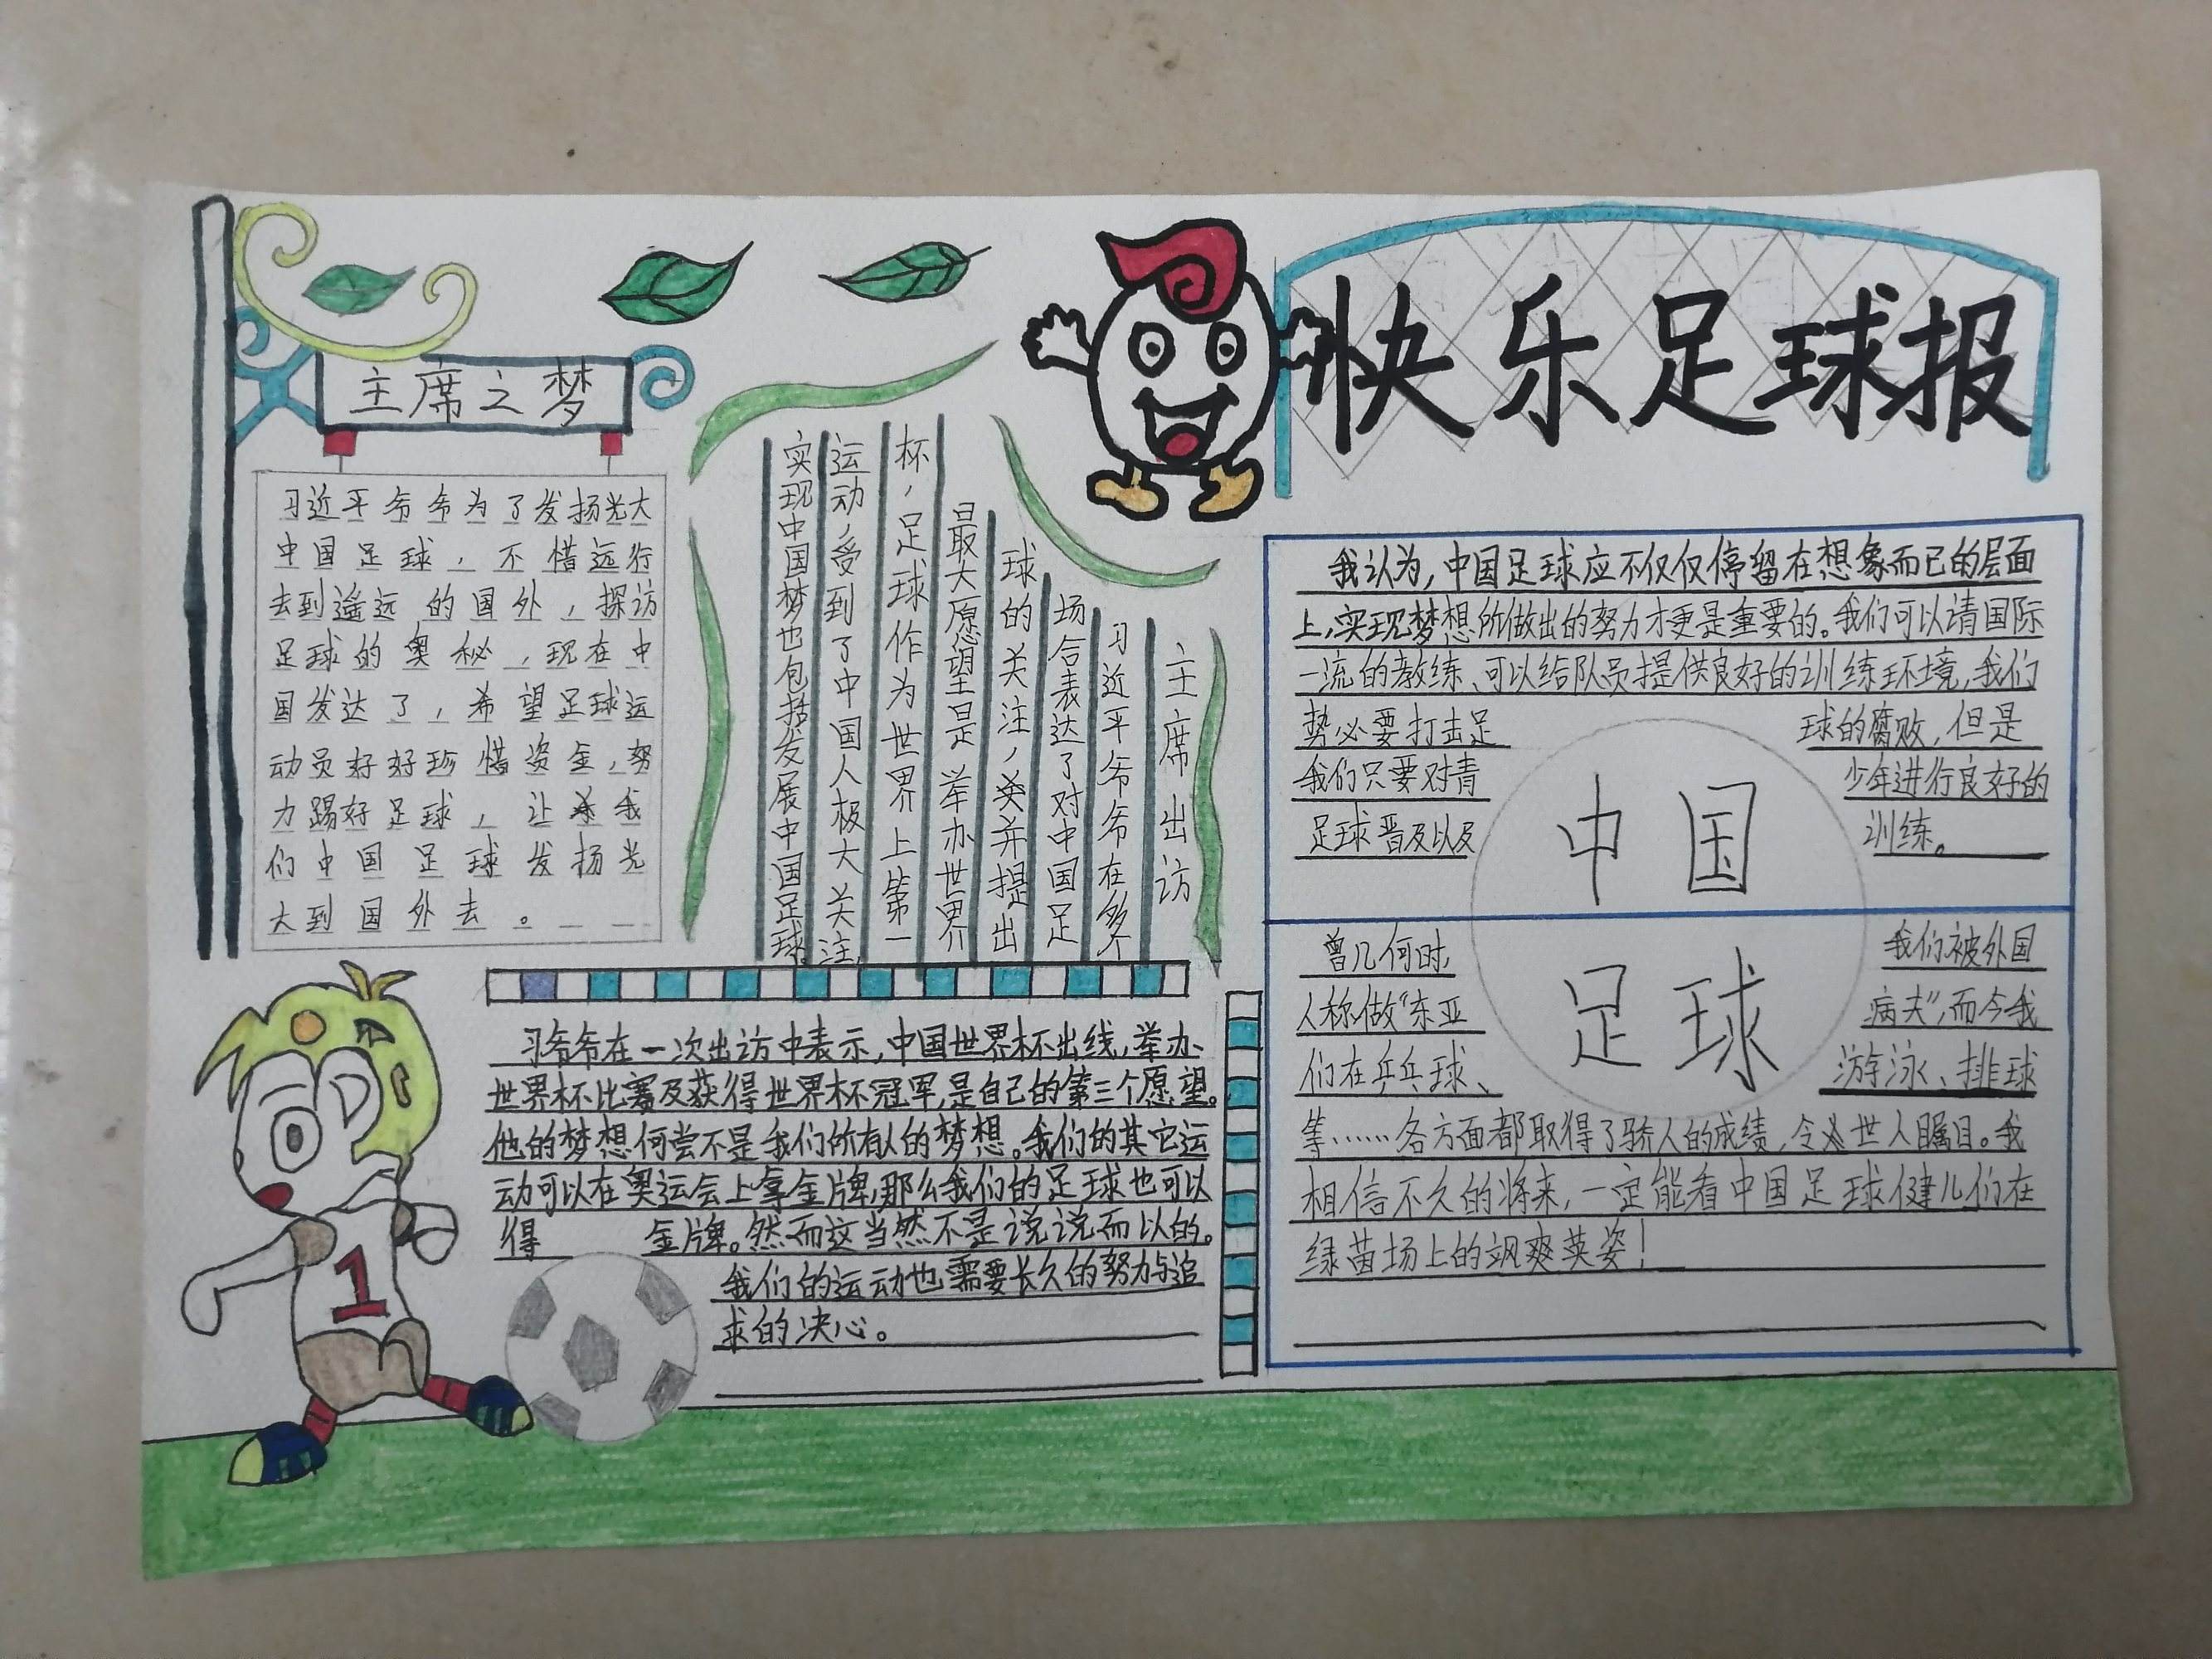 快乐足球报
主席之梦
习近平爷爷为了发扬光大
中国足球，不惜远行
去到遥远的国外，探访
足球的奥秘，现在中
国发达了，希望足球运
动员好好珍惜资金，努
力踢好足球，让我
们中国足球发扬光
大到国外去。
主席出访
习近平爷爷在多个
场合表达了对中国足
球的关注，并提出
最大愿望是举办世界
杯，足球作为世界上第一
运动，受到了中国人极大关注，
实现中国梦也包括发展中国足球。
习爷爷在一次出访中表示，中国世界杯出线，举办
世界杯比赛及获得世界杯冠军，是自己的第三个愿望。
他的梦想何尝不是我们所有人的梦想。我们的其它运
动可以在奥运会上拿金牌，那么我们的足球也可以
得金牌。然而这当然不是说说而以的。
我们的运动也需要长久的努力与追
求的决心。
我认为，中国足球应不仅仅停留在想象而已的层面
上，实现梦想所做出的努力才更是重要的。我们可以请国际
一流的教练、可以给队员提供良好的训练环境，我们
势必要打击足球的腐败，但是
我们只要对青少年进行良好的
足球普及以及训练。
中国
足球
曾几何时，我们被外国
人称做“东亚病夫”，而今我
们在乒乓球、游泳、排球
等……各方面都取得了骄人的成绩，令世人瞩目。我
相信不久的将来，一定能看中国足球健儿们在
绿茵场上的飒爽英姿！
1